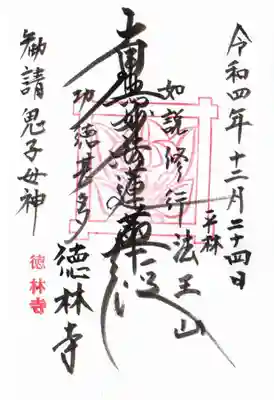 令和四年十二月二十四日
平林
如説修行法王山
南無妙法蓮華経
功徳甚多
徳林寺
勧請鬼子母神
徳林寺